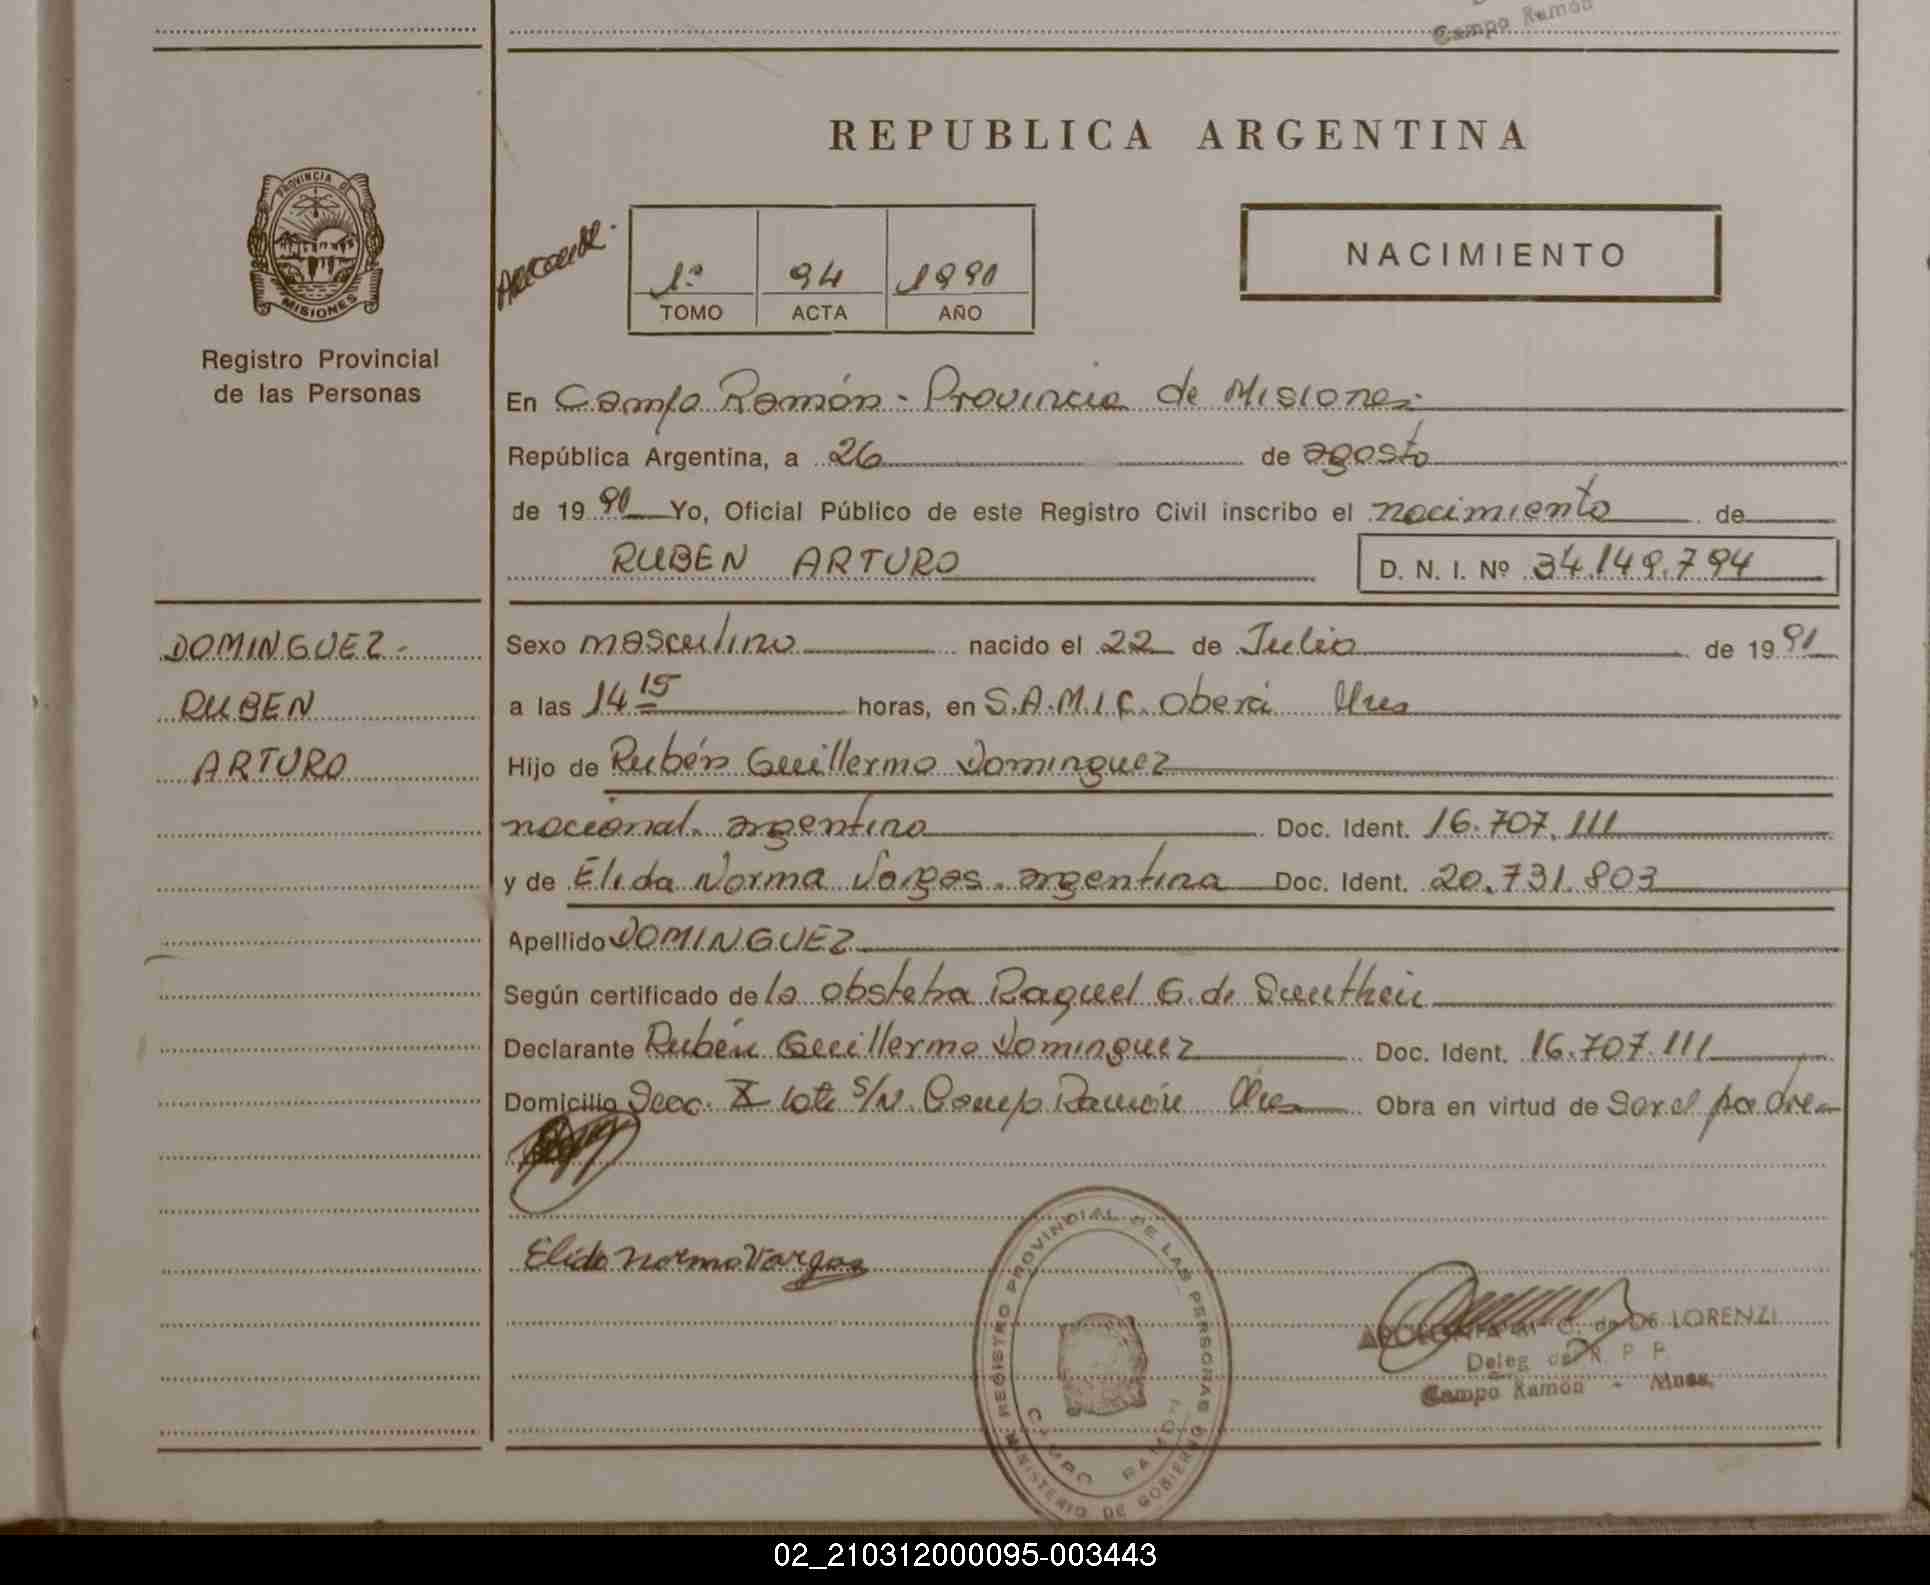 Campo Ramón
REPUBLICA ARGENTINA
PROVINCIA DE
MISIONES
Registro Provincial
de las Personas
1º 94 1991
TOMO ACTA AÑO
NACIMIENTO
En Campo Ramón - Provincia de Misiones.
República Argentina, a 26 de agosto
de 19 91 Yo, Oficial Público de este Registro Civil inscribo el nacimiento de
RUBEN ARTURO D. N. I. Nº 34.149.794
DOMINGUEZ -
RUBEN
ARTURO
Sexo masculino nacido el 22 de Julio de 19 91
a las 14 15 horas, en S.A.M.I.C. Oberá Mnes
Hijo de Rubén Guillermo Dominguez
nacional. argentino Doc. Ident. 16.707.111
y de Elida Norma Vargas. argentina Doc. Ident. 20.731.803
Apellido DOMINGUEZ
Según certificado de la obstetra Raquel G. de
Declarante Rubén Guillermo Dominguez Doc. Ident. 16.707.111
Domicilio Secc. X lote S/N. Campo Ramón Mnes Obra en virtud de Ser el padre
Elida Norma Vargas
REGISTRO PROVINCIAL DE LAS PERSONAS
MINISTERIO DE GOBIERNO
CAMPO RAMON
APOLONIA M. C. de DE LORENZI
Deleg del R. P. P.
Campo Ramón - Mnes.
02_210312000095-003443